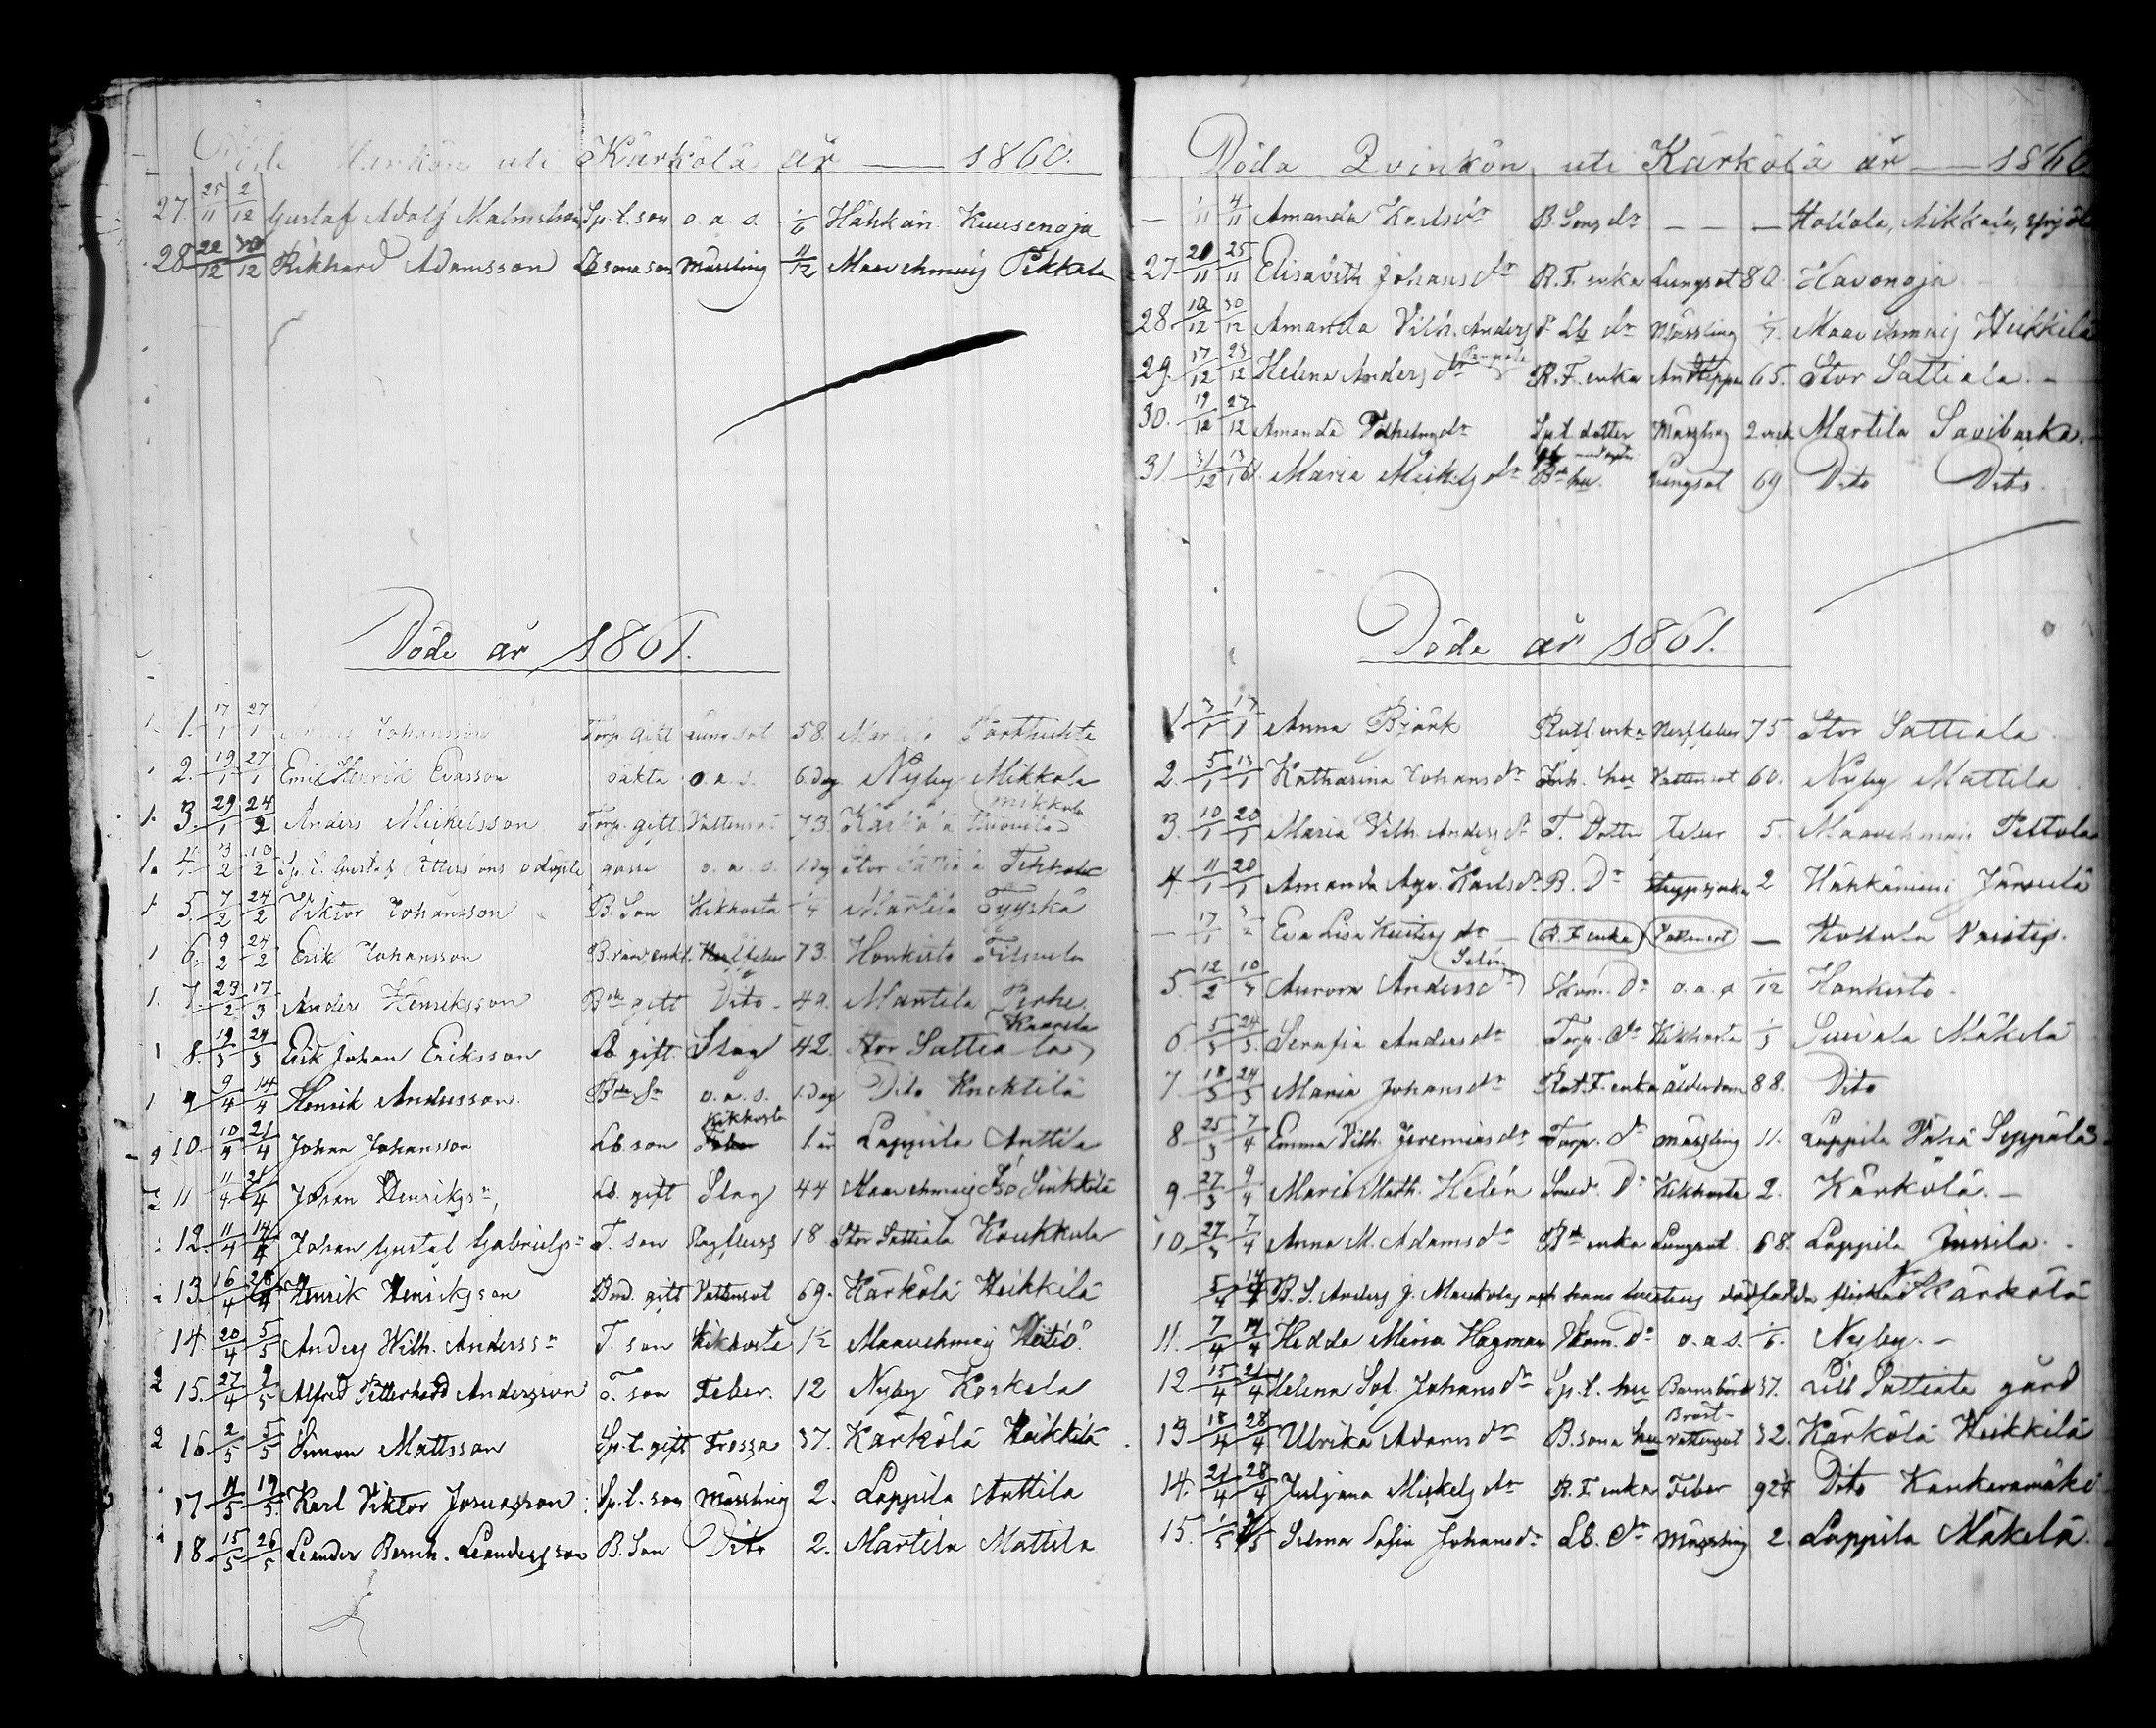 Döde Mankön uti Kärkölä år — 1860.
27. 25/11 2/12 Gustaf Adolf Malmström Sp.l. son o.a.s. 1/6 Hähkän. Kuusenoja
28 22/12 30/12 Rikhard Adamsson Lb sona son Mässling 11/12 Maavehmaij Pekkala
Döde år 1861.
1. 1. 17/1 27/1 Johansson Torp. gift Lungsot 58. Martila
1 2. 19/1 27/1 Emil Henrik Evasson oäkta o.a.s. 6. dag Nyby Mikkola
1. 3. 29/1 24/2 Anders Mickelsson Torp. gift Vattensot 73. Kärkölä Mikkola
1. 4. 3/2 10/2 Sp.l. Gustaf Pettersons odöpte gosse o.a.s. 1. dag Stor Sattiala
1 5. 7/2 24/2 Viktor Johansson B. Son Kikhosta 1/4 Martila Tyyskä
1 6. 9/2 24/2 Erik Johansson 73. Honkisto
1. 7. 23/2 17/3 Anders Henriksson Bde gift Dito 49. Martila Perhe
1 8. 19/3 24/3 Erik Johan Eriksson Lb gift. Slag 42. Stor Sattiala Kaarela
1 9 9/4 14/4 Henrik Andersson. Bde Sn o.a.s. 1. dag Dito Knektilä
10. 10/4 21/4 Johan Johansson Lb. son Kikhosta 1. år Lappila Anttila
2 11 11/4 21/4 Johan Henriksn Lb. gift Slag 44 Maavehmaij Iso Sinkkilä
12. 11/4 14/4 Johan Gustaf Gabrielsn T. son 18 Stor Sattiala Koukkula
13. 16/4 28/4 Henrik Henriksson Bond. gift Vattensot 69. Kärkölä Heikkilä
14. 20/4 5/5 Anders Wilh. Anderssn T. son Kikhosta 1½ Maavehmaij
2 15. 27/4 Andersson T. son Feber. 12 Nyby Koskela
2 16. 2/5 5/5 Simon Mattsson Sp.l. gift Frossa 37. Kärkölä Heikkilä
17 11/5 19/5 Karl Viktor Josuasson Sp.l. son Mässling 2. Lappila Anttila
18 15/5 26/5 Leander Bernh. Leandersson B. Son Dito 2. Martila Mattila
Döda Qvinkön, uti Kärkölä år — 1860.
— 1/11 4/11 Amanda Karlsdr B. Sons dr — — — Hollola, Mikkola,
27 20/11 25/11 Elisabeth Johansdr R.F. enka Lungsot 80. Havonoja
28. 10/12 30/12 Amanda Vilh. Andersdr Lb dr Mässling Maavehmaij Heikkilä
29. 17/12 23/12 Helena Andersdr R.F. enka 65. Stor Sattiala. —
30. 19/12 27/12 Amanda Vilhelmsdr Sp.l. dotter Mässling 2 veck Martila Savibacka.
31. 31/12 13/1 61. Maria Mickelsdr Bde hu. Lungsot 69 Dito Dito.
Döde år 1861.
1 3/1 13/1 Anna Björk Rotf. enka Nerffeber 75 Stor Sattiala
2. 5/1 13/1 Katharina Johansdr Inh. hu Vattensot 60. Nyby Mattila
3. 10/1 20/1 Maria Vilh. Andersdr T. Dotter Feber 5. Maavehmaa Peltola
4 11/1 20/1 Amanda Agv. Karlsdr B. Dr Strypsjuka 2 Hähkäniemi Järvelä
— 17/1 3/2 Eva Lisa dr — R.F. enka Vattensot — Hollola
5. 12/2 10/3 Aurora Andersdr Selin Skom. Dr o.a.s 1/12 Honkisto.
6. 5/3 24/3 Serafia Andersdr Torp. dr Kikhosta Mäkelä
7. 18/3 24/3 Maria Johansdr Rot.F. enka ålderdom 88. Dito
8 25/3 7/4 Emma Vilh. Jeremiasdr Torp. dr Mässling 11. Lappila Vähä Seppälä
9 27/3 9/4 Maria Math. Helén Smed. Dr Kikhosta 2. Kärkölä. —
10. 27/3 7/4 Anna M. Adamsdr Bde enka Lungsot 68. Lappila Jussila.
5/4 14/4 B.S. Anders J. och hans hustrus dödfödda flicka Kärkölä
11. 7/4 14/4 Hedda Maria Hagman Skom. Dr o.a.s. 1/6. Nyby. —
12 15/4 21/4 Helena Sof. Johansdr Sp.l. hu Barnsbörd 37. Lill Sattiala gård
13 18/4 28/4 Ulrika Adamsdr B. sona hu Bröst-Vattensot 32. Kärkölä Heikkilä
14. 21/4 28/4 Juljana Mickelsdr R.F. enka Feber Dito Kankaramäki
15. 1/5 5/5 Selma Sofia Johansdr Lb. dr Mässling 2. Lappila Mäkelä.